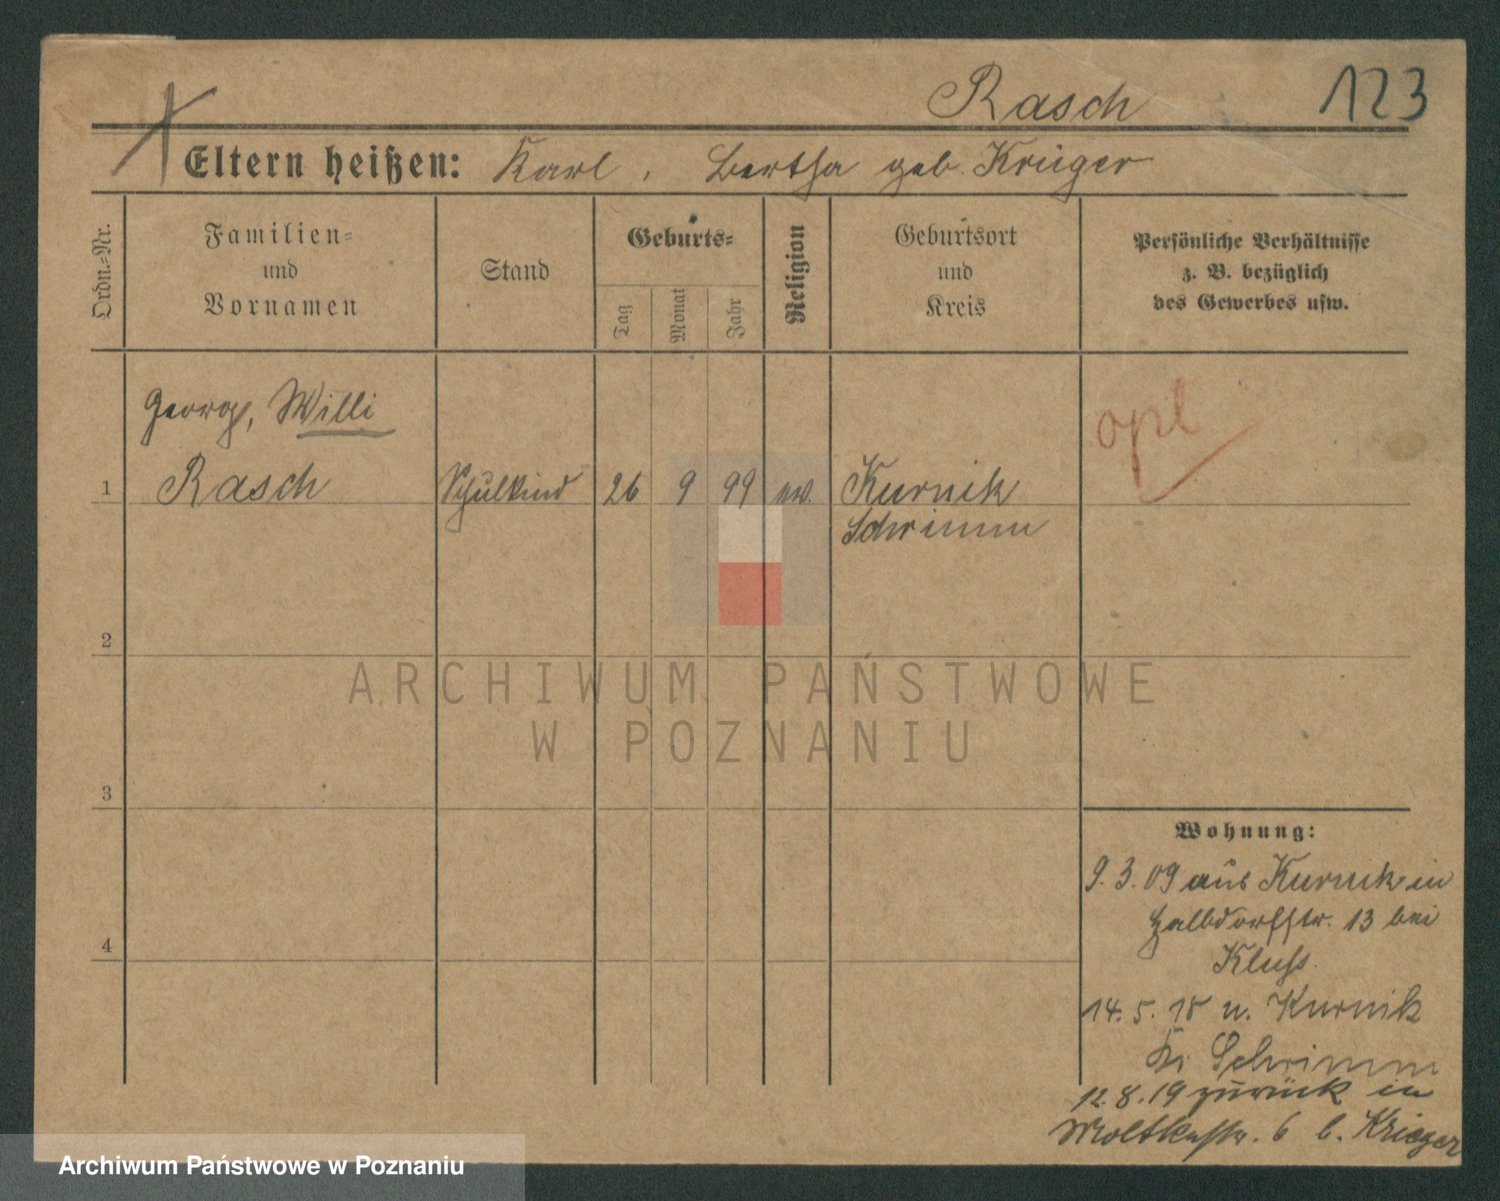 Rasch
123
Eltern heißen: Karl, Bertha geb. Krüger
Ordn.-Nr.
Familien-
und
Vornamen
Stand
Geburts-
Tag
Monat
Jahr
Religion
Geburtsort
und
Kreis
Persönliche Verhältnisse
z. B. bezüglich
des Gewerbes usw.
Georg, Willi
opt
1 Rasch Schulkind 26 9 99 ev. Kurnik
Schrimm
2
3
4
ARCHIWUM PAŃSTWOWE
W POZNANIU
Wohnung:
9.3.09 aus Kurnik in
Halbdorfstr. 13 bei
14.5.18 n. Kurnik
Kr Schrimm
12.8.19 zurück in
Moltkestr. 6 b. Krieger
Archiwum Państwowe w Poznaniu